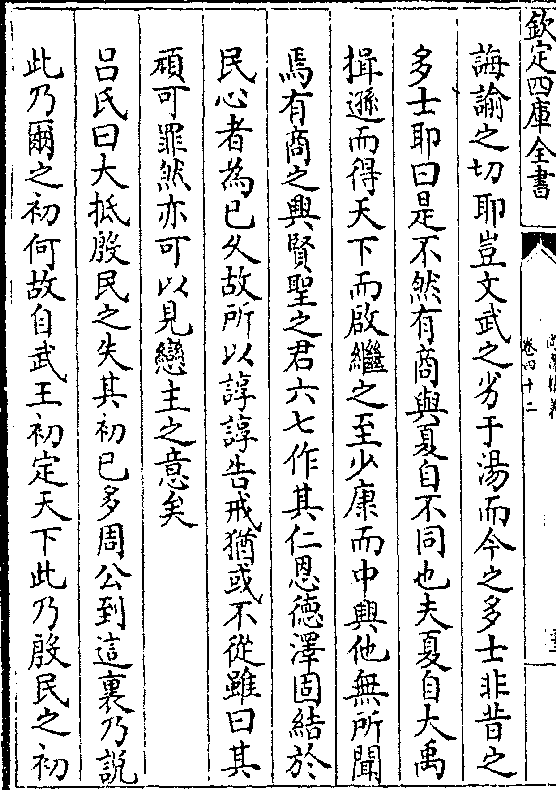 欽定四庫全書
卷四十二
誨諭之切耶豈文武之劣于湯而今之多士非昔之
多士耶曰是不然有商與夏自不同也夫夏自大禹
揖遜而得天下而啟繼之至少康而中興他無所聞
焉有商之興賢聖之君六七作其仁恩德澤固結於
民心者為已久故所以諄諄告戒猶或不從雖曰其
頑可罪然亦可以見戀主之意矣
呂氏曰大抵殷民之失其初已多周公到這裏乃説
此乃爾之初何故自武王初定天下此乃殷民之初